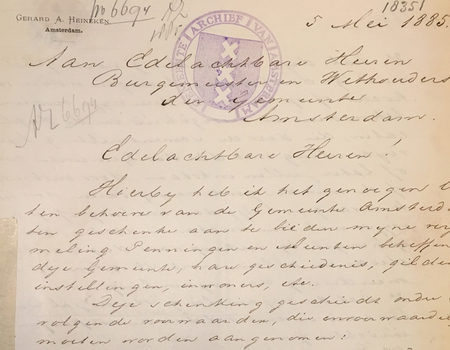 GERARD A. HEINEKEN
Amsterdam.
No 6694
18351
5 Mei 1885.
GEMEENTE | ARCHIEF | VAN | AMSTERDAM
Aan Edelachtbare Heeren
Burgemeester en Wethouders
der Gemeente
Amsterdam.
6694
Edelachtbare Heeren!
Hierbij heb ik het genoegen
ten behoeve van de Gemeente Amsterda
ten geschenke aan te bieden mijne ver
meling Penningen en Munten betreffen
deze Gemeente, hare geschiedenis, gilde
instellingen, inwoners, etc.
Deze schenking geschiedt onder
volgende voorwaarden, die onvoorwaardel
moeten worden aangenomen: